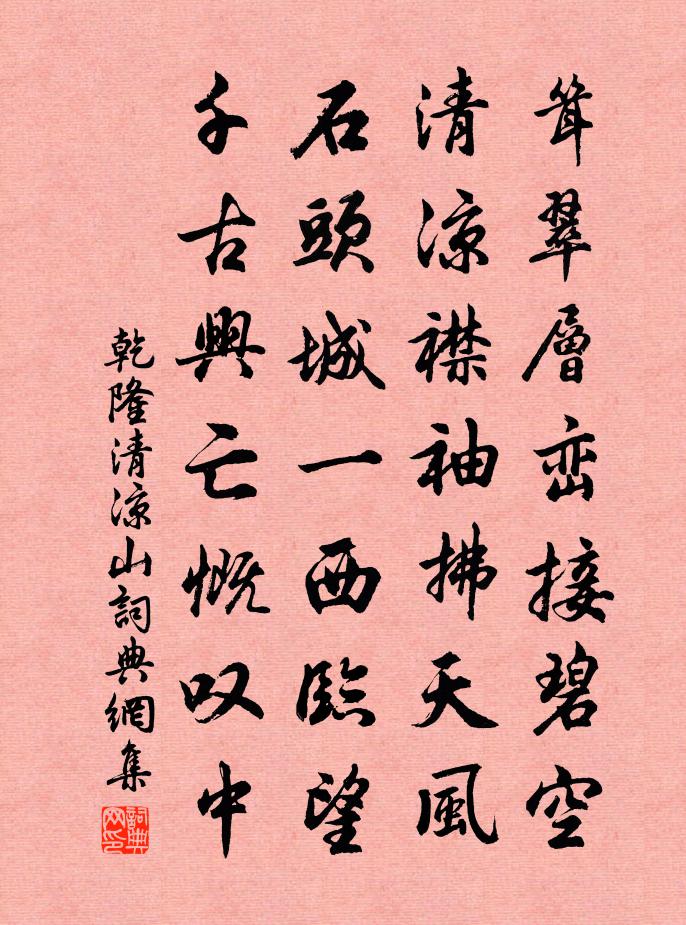 耸翠層峦接碧空
清凉襟袖拂天風
石頭城一西臨望
千古興亡慨叹中
乾隆清凉山詞典網集
詞典网印